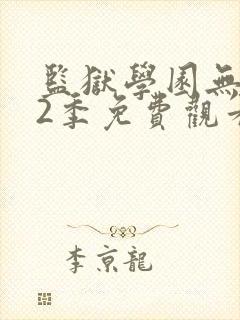 監獄學園無
2季免費觀看
李京龍